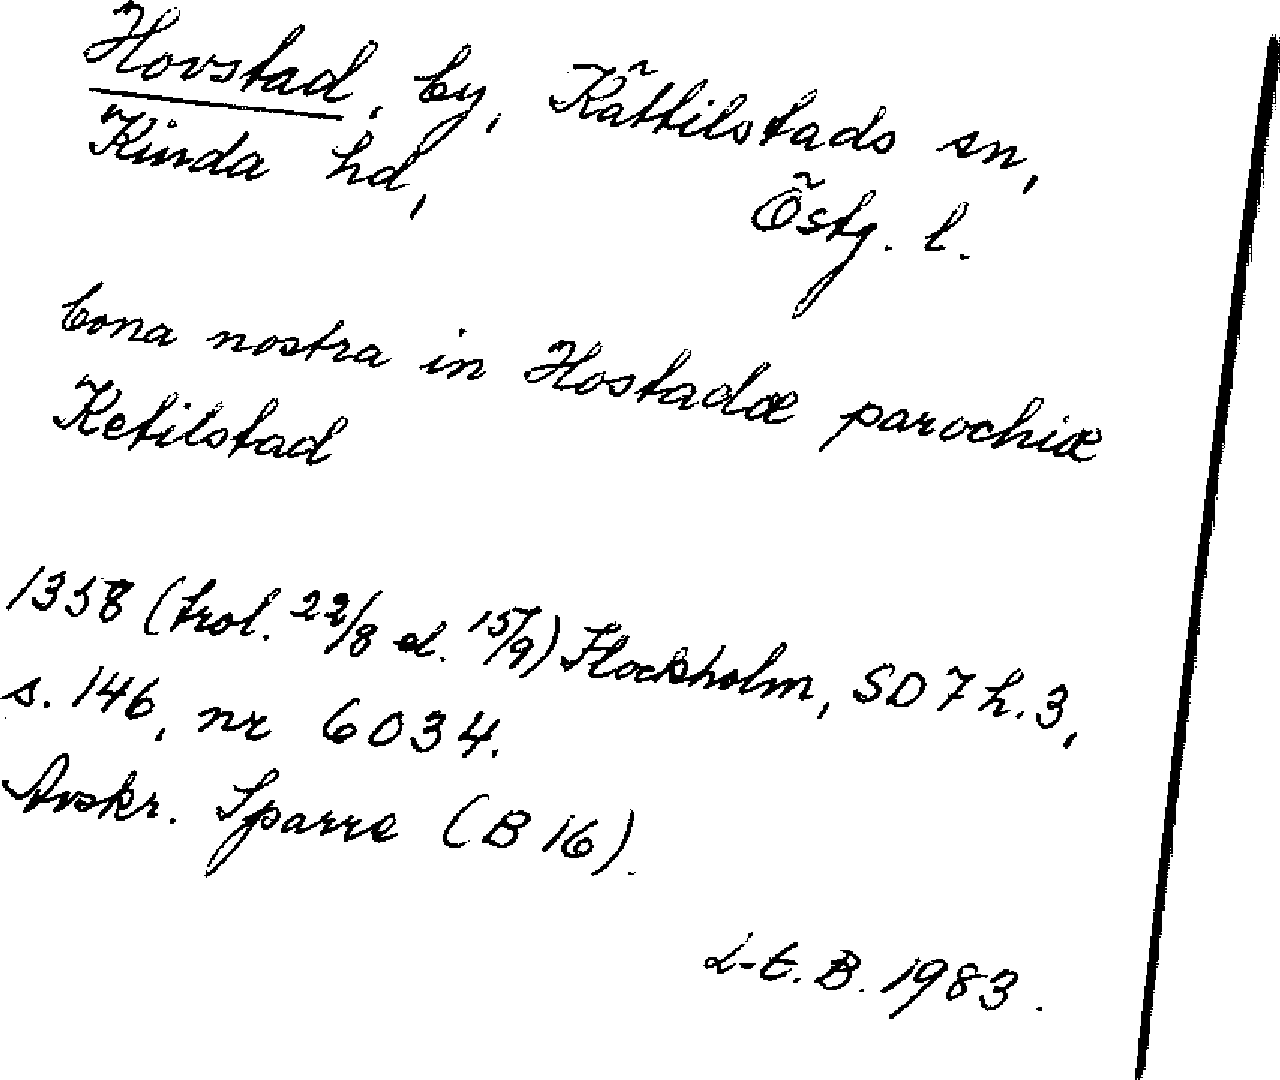 Hovstad, by, Kättilstads sn,
Kinda hd,
Östg. l.
bona nostra in Hostadæ parochiæ
Ketilstad
1358 (trol. 22/8 el. 15/9) Stockholm, SD 7 h. 3,
s. 146, nr 6034.
Avskr. Sparre (B 16).
L-E. B. 1983.